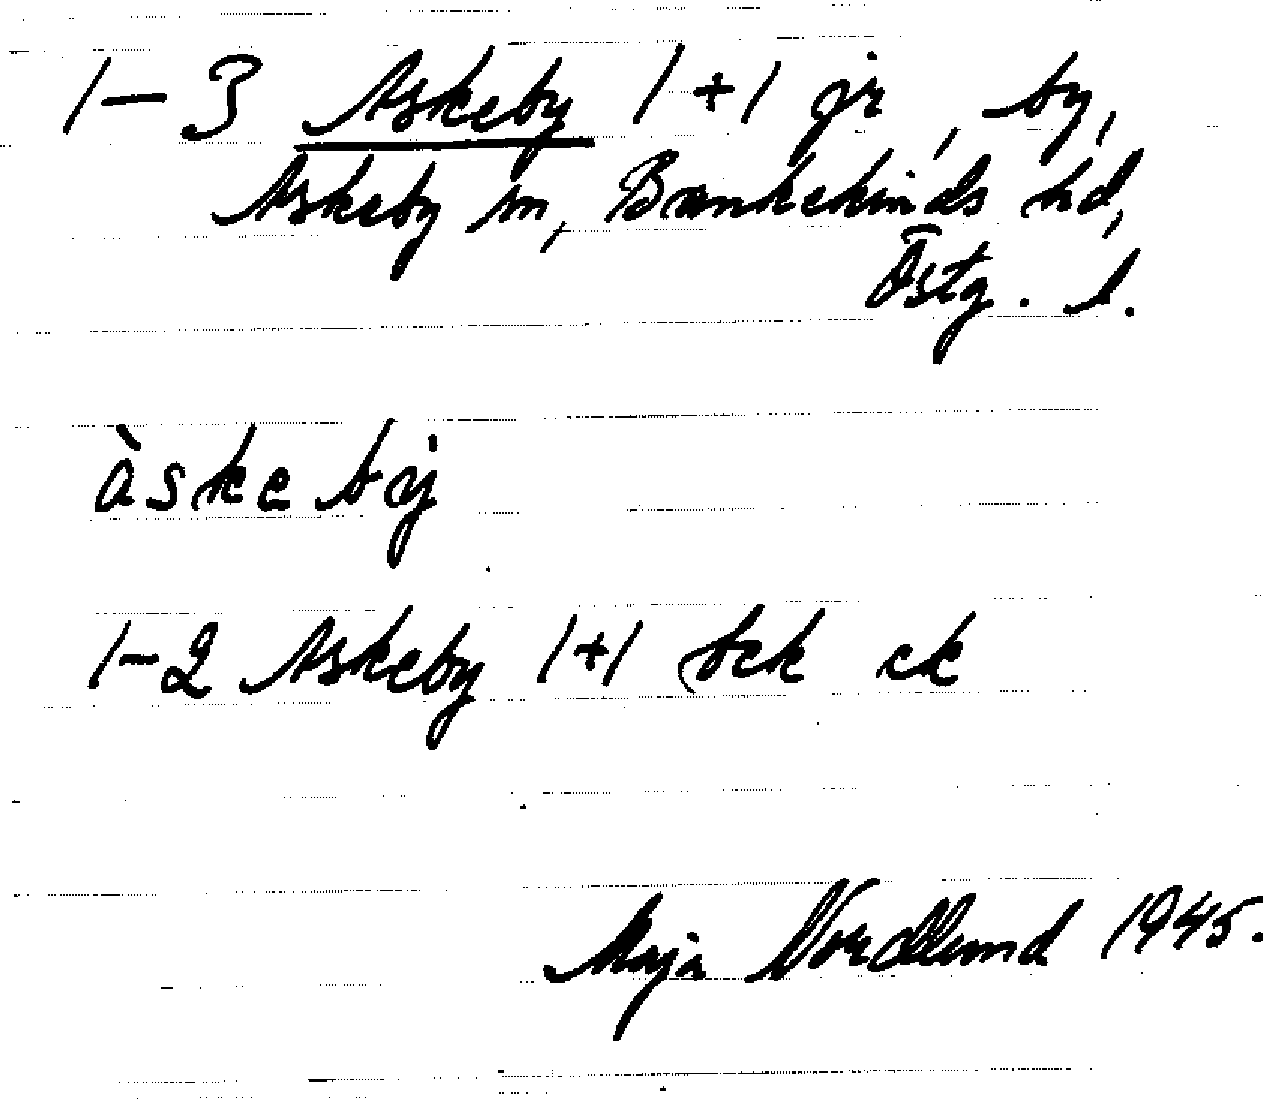 1-3 Askeby 1+1 jr, by,
Askeby sn, Bankekinds hd,
Östg. l.
àskeby
1-2 Askeby 1+1 bck ek
Maja Nordlund 1945.